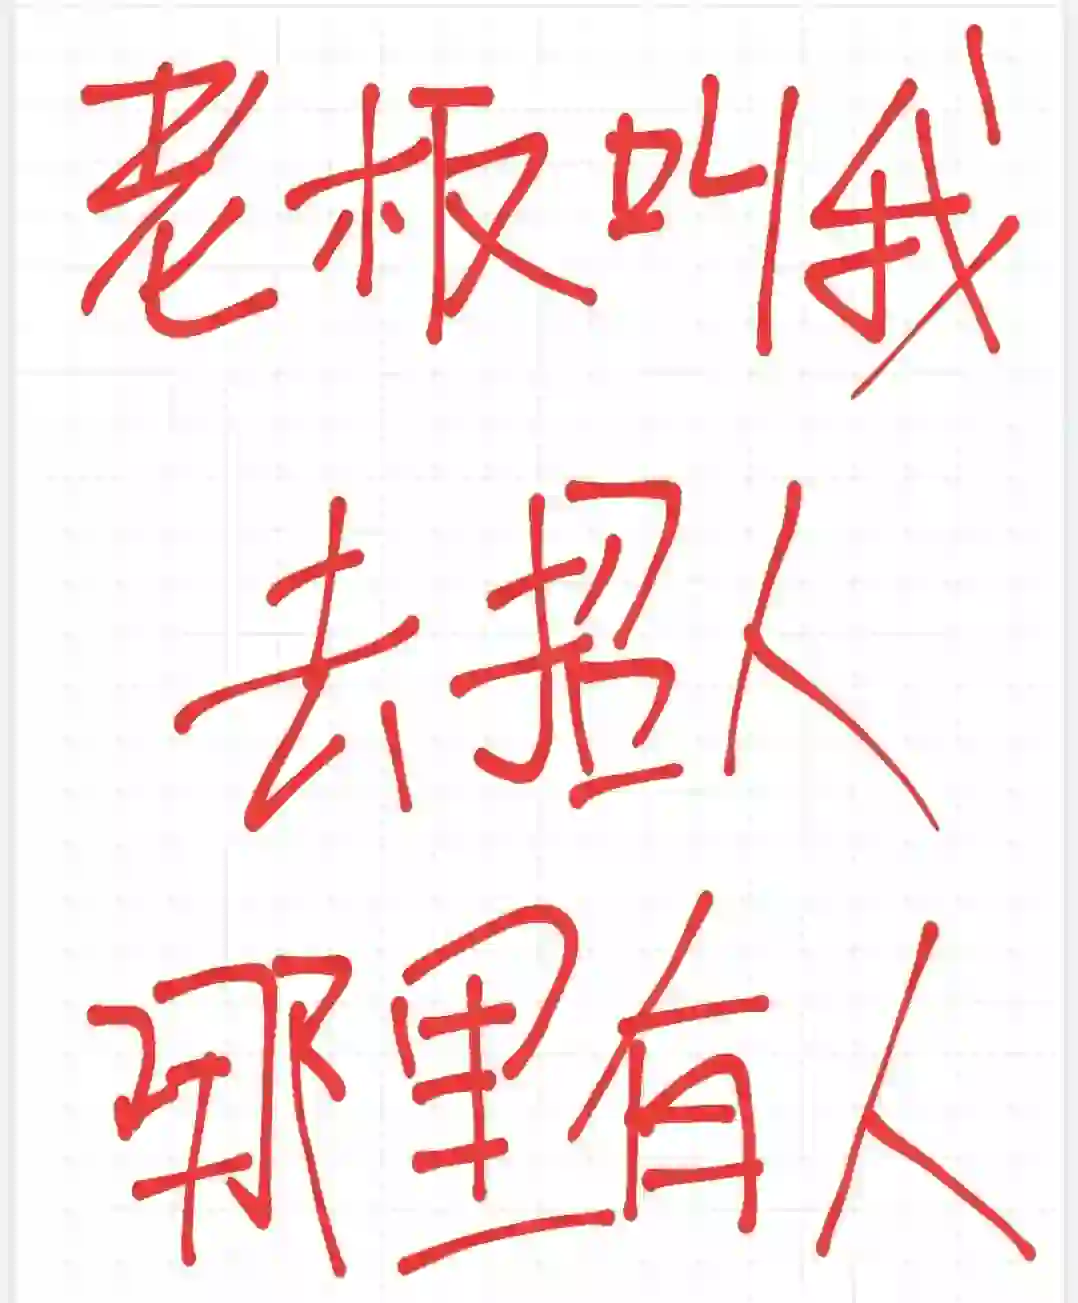 老板叫我
去招人
哪里有人